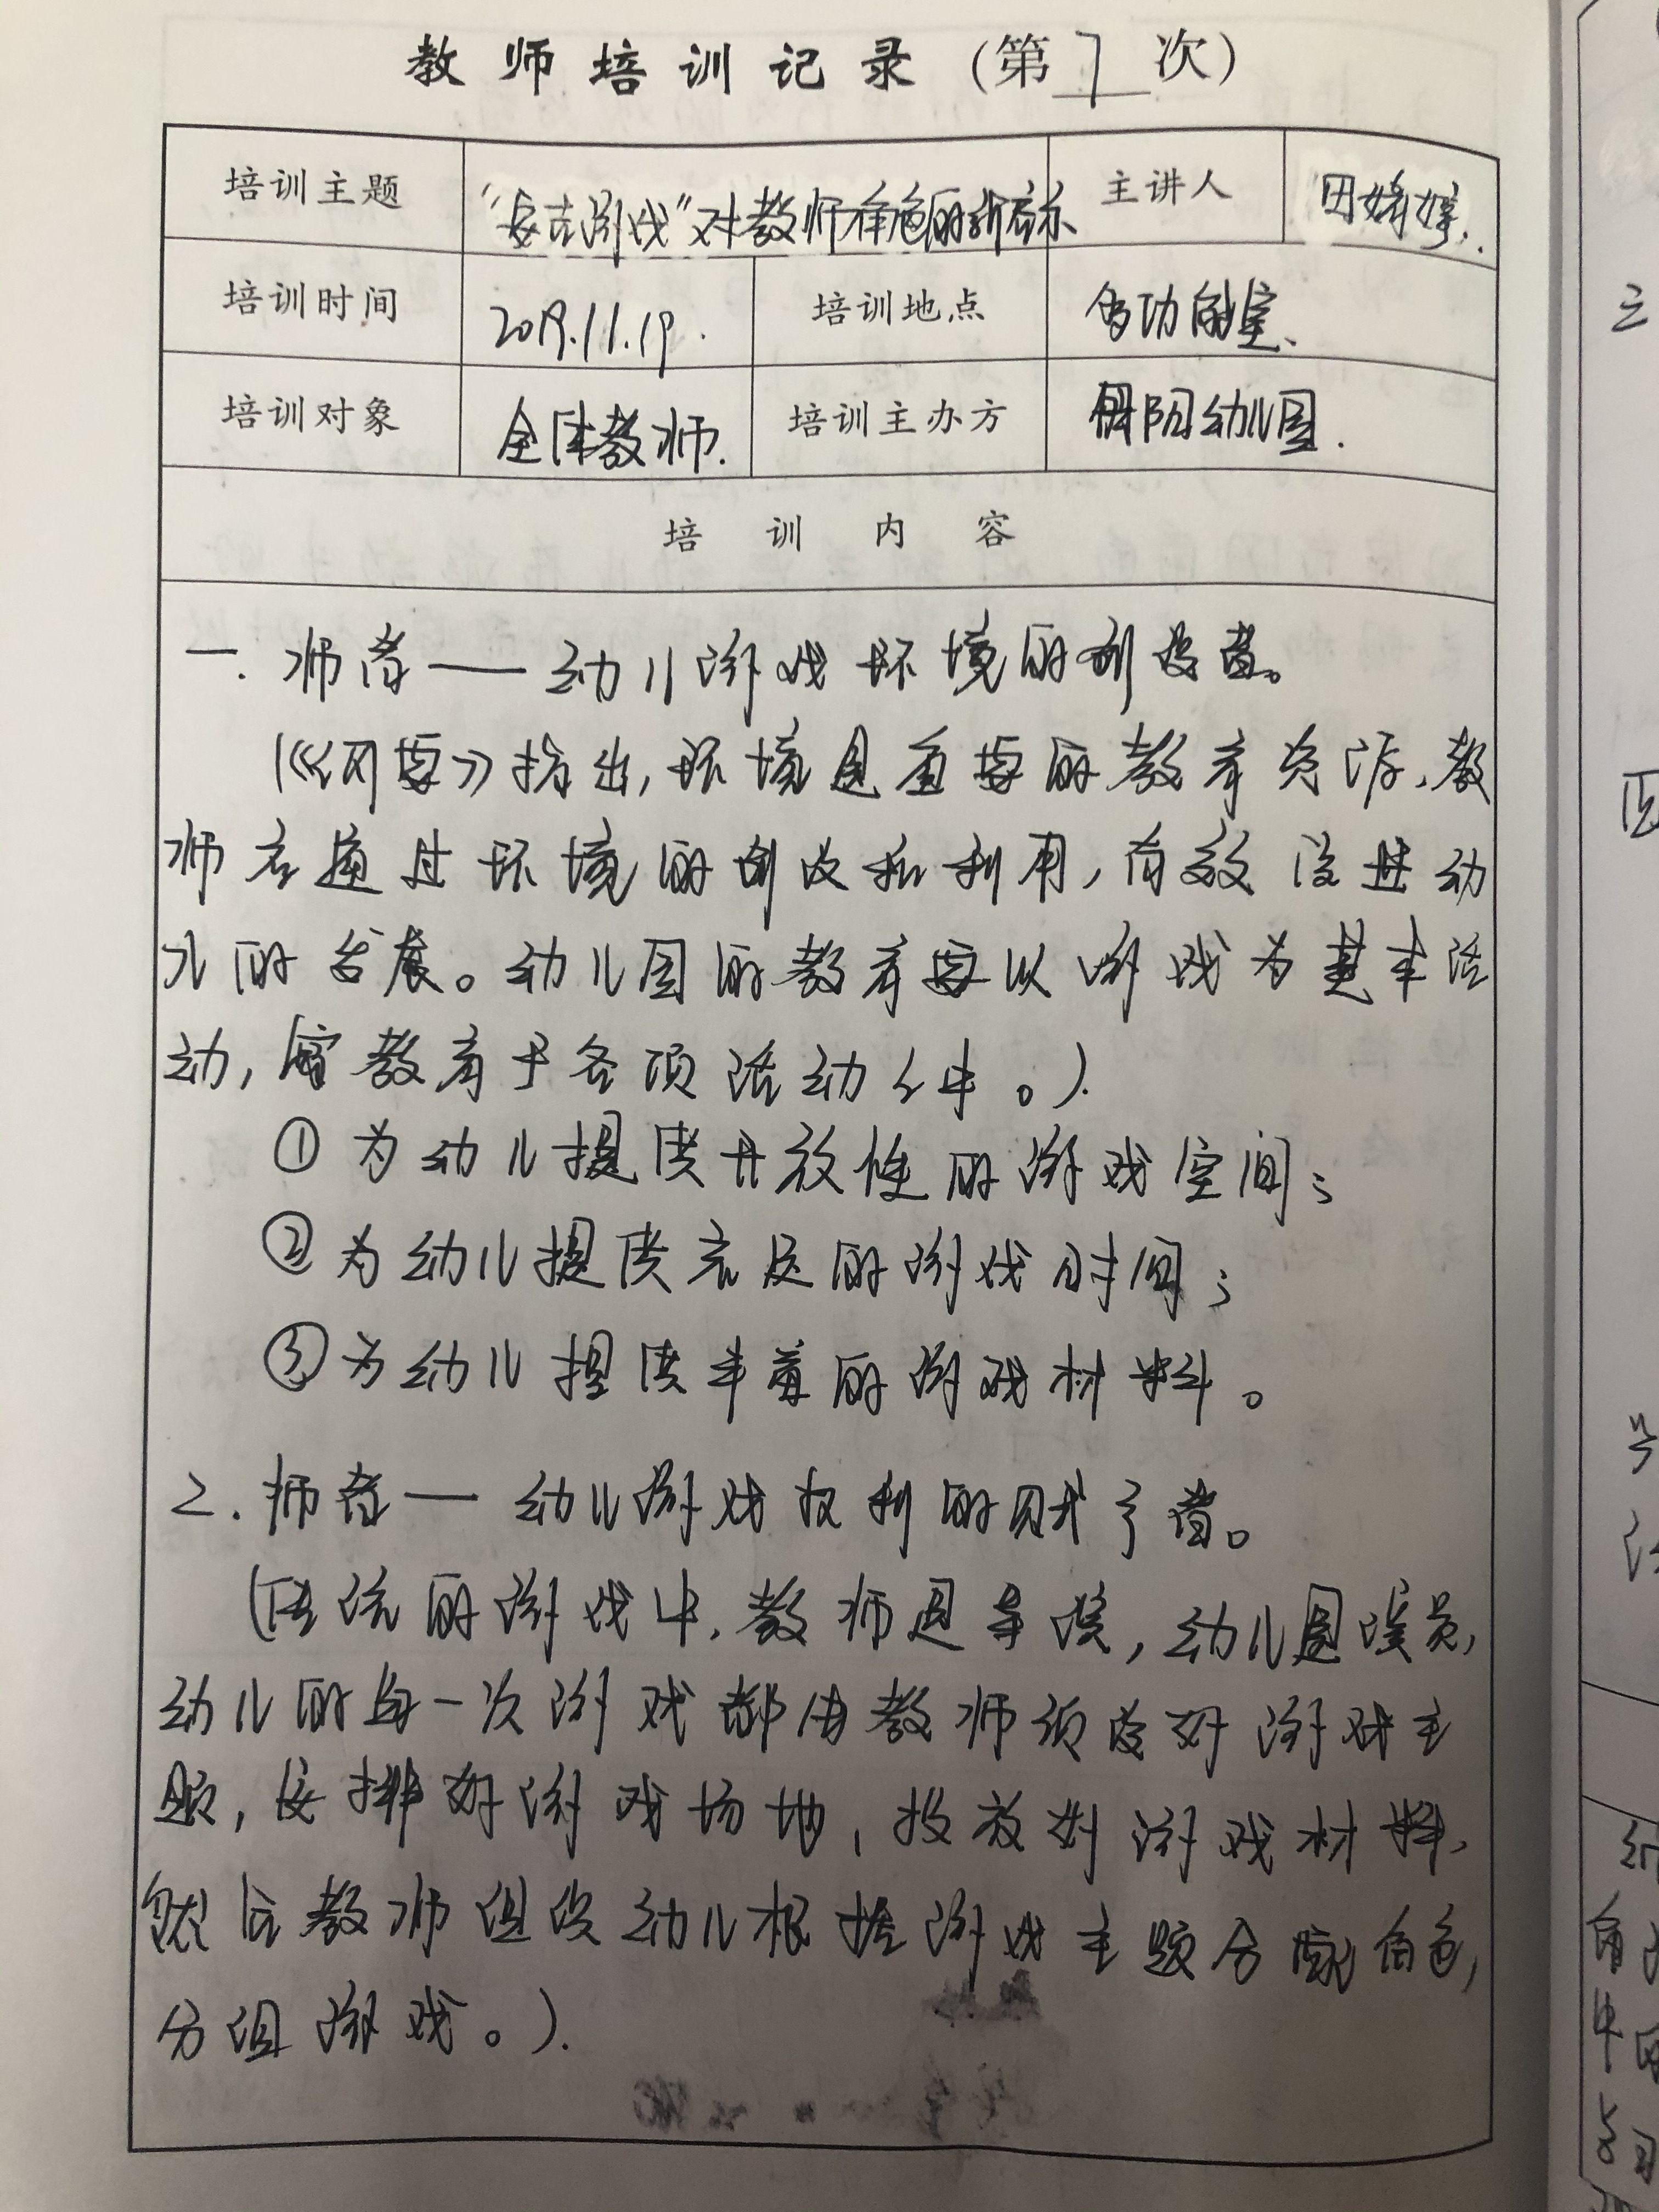 教师培训记录（第7次）
培训主题 “安吉游戏”对教师角色的新启示 主讲人 田婷婷.
培训时间 2019.11.19. 培训地点 多功能室、
培训对象 全体教师. 培训主办方 阳幼儿园.
培训内容
一. 师者——幼儿游戏环境的创设者。
(《纲要》指出,环境是重要的教育资源,教
师应通过环境的创设和利用,有效促进幼
儿的发展。幼儿园的教育要以游戏为基本活
动,寓教育于各项活动之中。).
①为幼儿提供开放性的游戏空间;
②为幼儿提供充足的游戏时间;
③为幼儿提供丰富的游戏材料。
2. 师者—幼儿游戏权利的赋予者。
(传统的游戏中,教师是导演,幼儿是演员,
幼儿的每一次游戏都由教师预设好游戏主
题,安排好游戏场地,投放好游戏材料,
然后教师组织幼儿根据游戏主题分配角色,
分组游戏。).